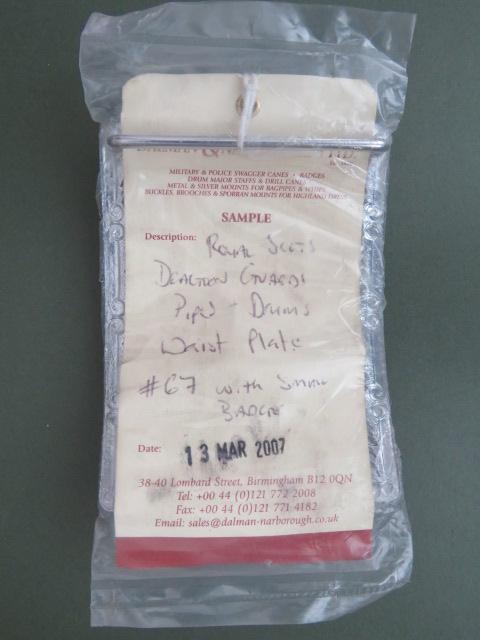 DALMAN & LTD.
MILITARY & POLICE SWAGGER CANES • BADGES
DRUM MAJOR STAFFS & DRILL CANES
METAL & SILVER MOUNTS FOR BAGPIPES & WHIPS
BUCKLES, BROOCHES & SPORRAN MOUNTS FOR HIGHLAND DRESS
SAMPLE
Description: Royal Scots
Dragoon Guards
Pipes - Drums
Waist Plate
#67 with Small
Badge
Date: 13 MAR 2007
38-40 Lombard Street, Birmingham B12 0QN
Tel: +00 44 (0)121 772 2008
Fax: +00 44 (0)121 771 4182
Email: sales@dalman-narborough.co.uk